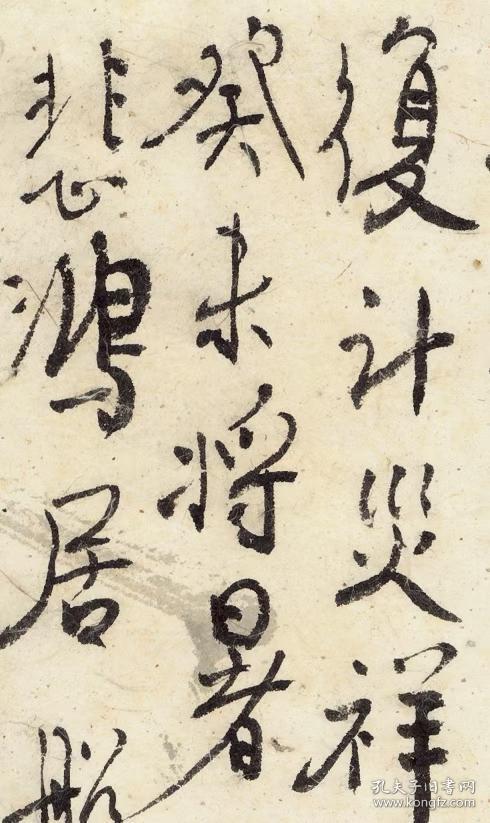 復计災祥
癸未将暑
悲鴻居
孔夫子旧书网
www.kongfz.com